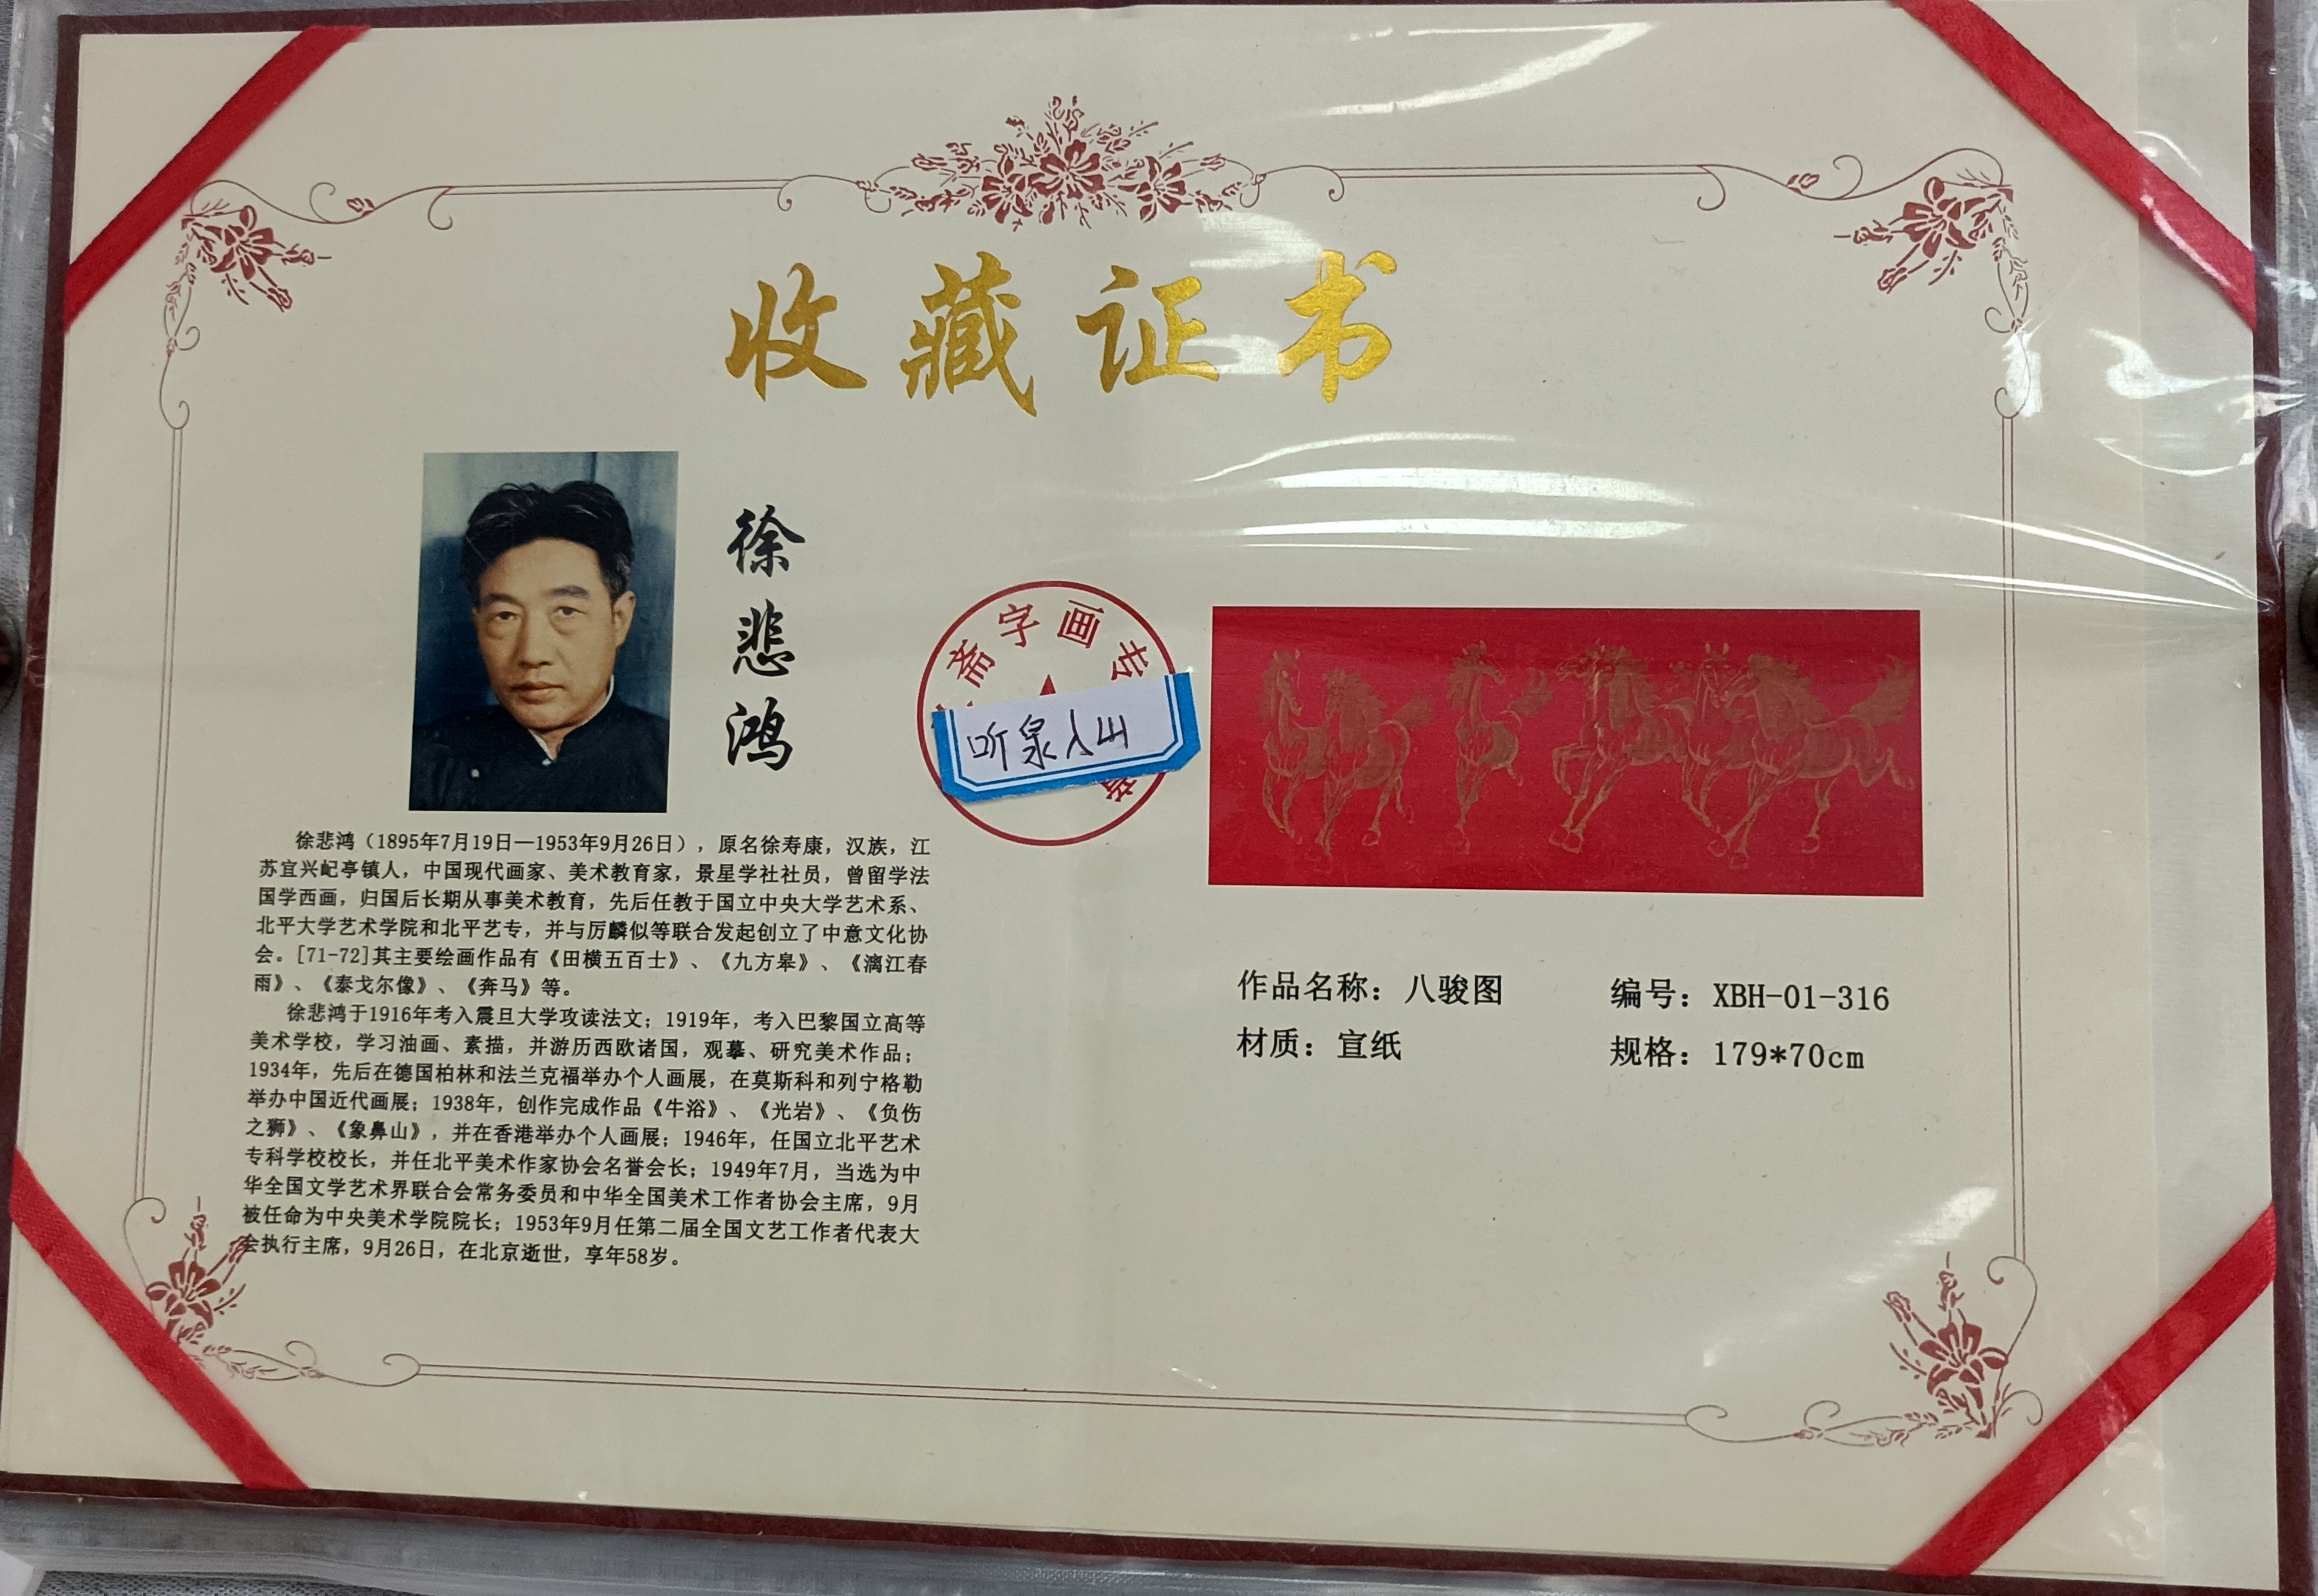 收藏证书
徐悲鸿
斋字画专
听泉入山
徐悲鸿（1895年7月19日—1953年9月26日），原名徐寿康，汉族，江
苏宜兴屺亭镇人，中国现代画家、美术教育家，景星学社社员，曾留学法
国学西画，归国后长期从事美术教育，先后任教于国立中央大学艺术系、
北平大学艺术学院和北平艺专，并与厉麟似等联合发起创立了中意文化协
会。[71-72]其主要绘画作品有《田横五百士》、《九方皋》、《漓江春
雨》、《泰戈尔像》、《奔马》等。
徐悲鸿于1916年考入震旦大学攻读法文；1919年，考入巴黎国立高等
美术学校，学习油画、素描，并游历西欧诸国，观摹、研究美术作品；
1934年，先后在德国柏林和法兰克福举办个人画展，在莫斯科和列宁格勒
举办中国近代画展；1938年，创作完成作品《牛浴》、《光岩》、《负伤
之狮》、《象鼻山》，并在香港举办个人画展；1946年，任国立北平艺术
专科学校校长，并任北平美术作家协会名誉会长；1949年7月，当选为中
华全国文学艺术界联合会常务委员和中华全国美术工作者协会主席，9月
被任命为中央美术学院院长；1953年9月任第二届全国文艺工作者代表大
会执行主席，9月26日，在北京逝世，享年58岁。
作品名称：八骏图
编号：XBH-01-316
材质：宣纸
规格：179*70cm